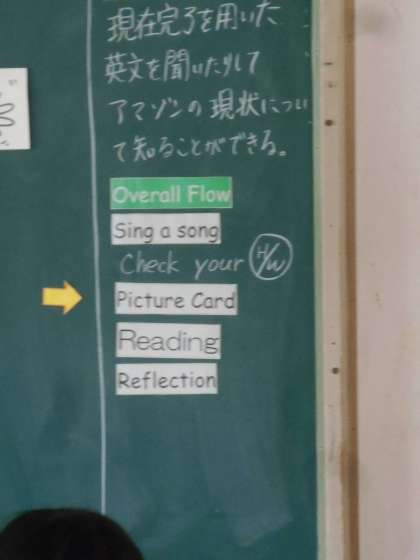 現在完了を用いた
英文を聞いたりして
アマゾンの現状につい
て知ることができる。
Overall Flow
Sing a song
Check your H/W
Picture Card
Reading
Reflection